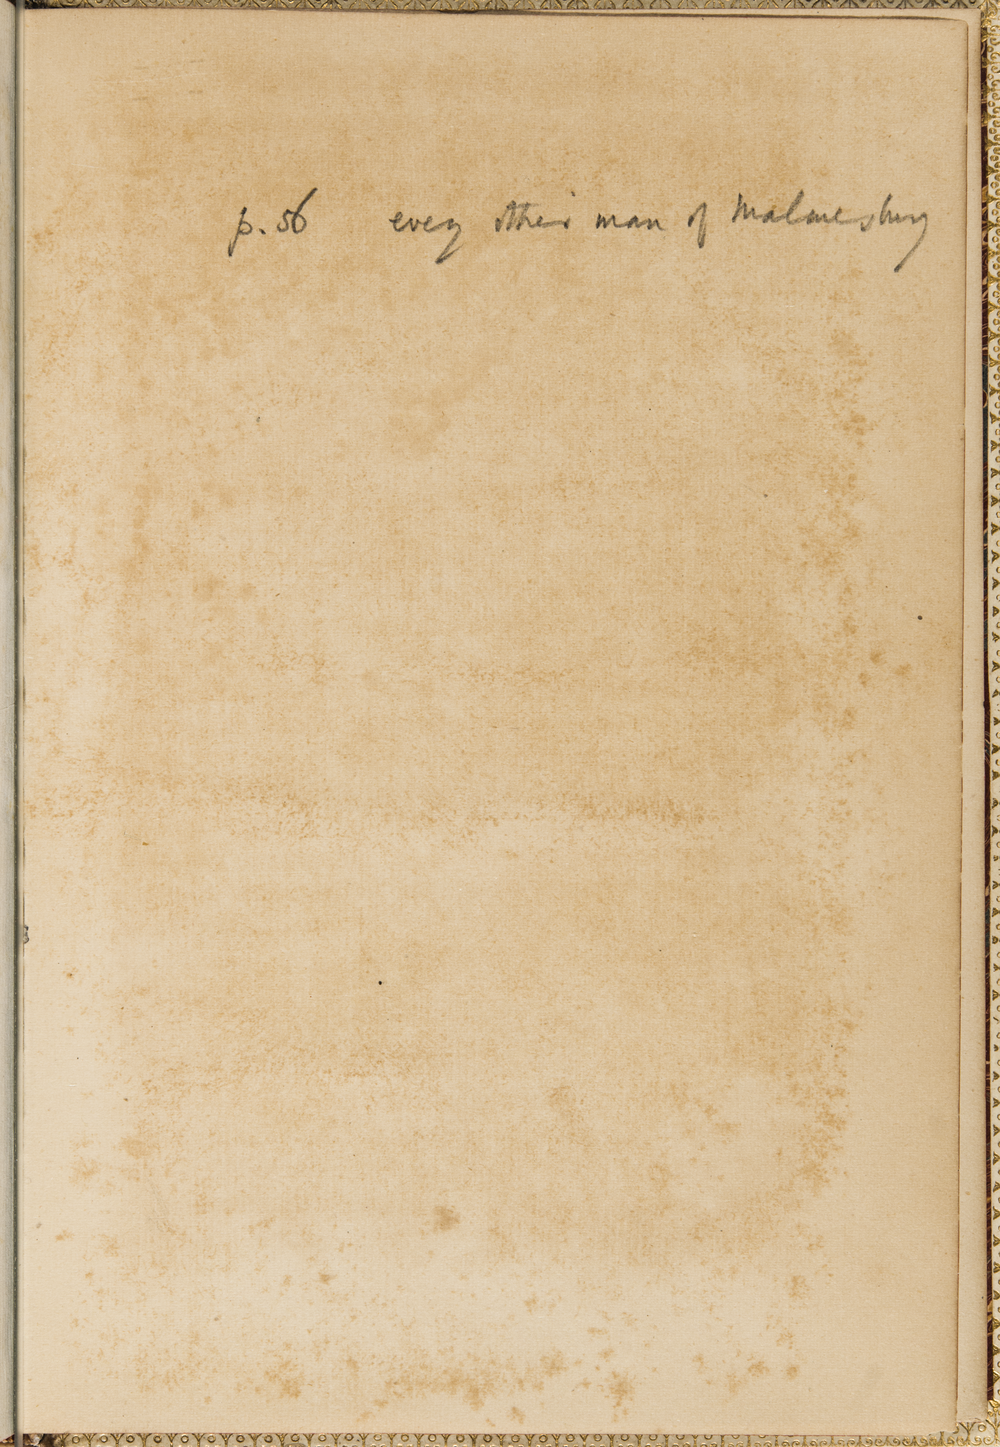 p. 56 every other man of Malmesbury